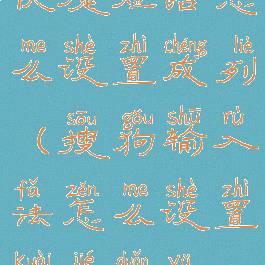 me shè zhì chéng liè
么设置成列
sōu gǒu shū rù
(搜狗输入
fǎ zěn me shè zhì
法怎么设置
kuài jié duǎn yǔ